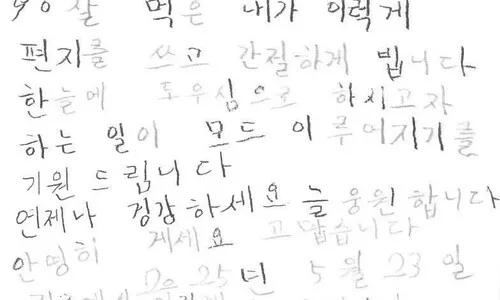 90살 먹은 내가 이렇게
편지를 쓰고 간절하게 빕니다
한늘에 도우심으로 하시고자
하는 일이 모드 이루어지기를
기원 드립니다
언제나 겅강하세요 늘 웅원 합니다
안영히 게세요 고맙습니다
25년 5월 23일